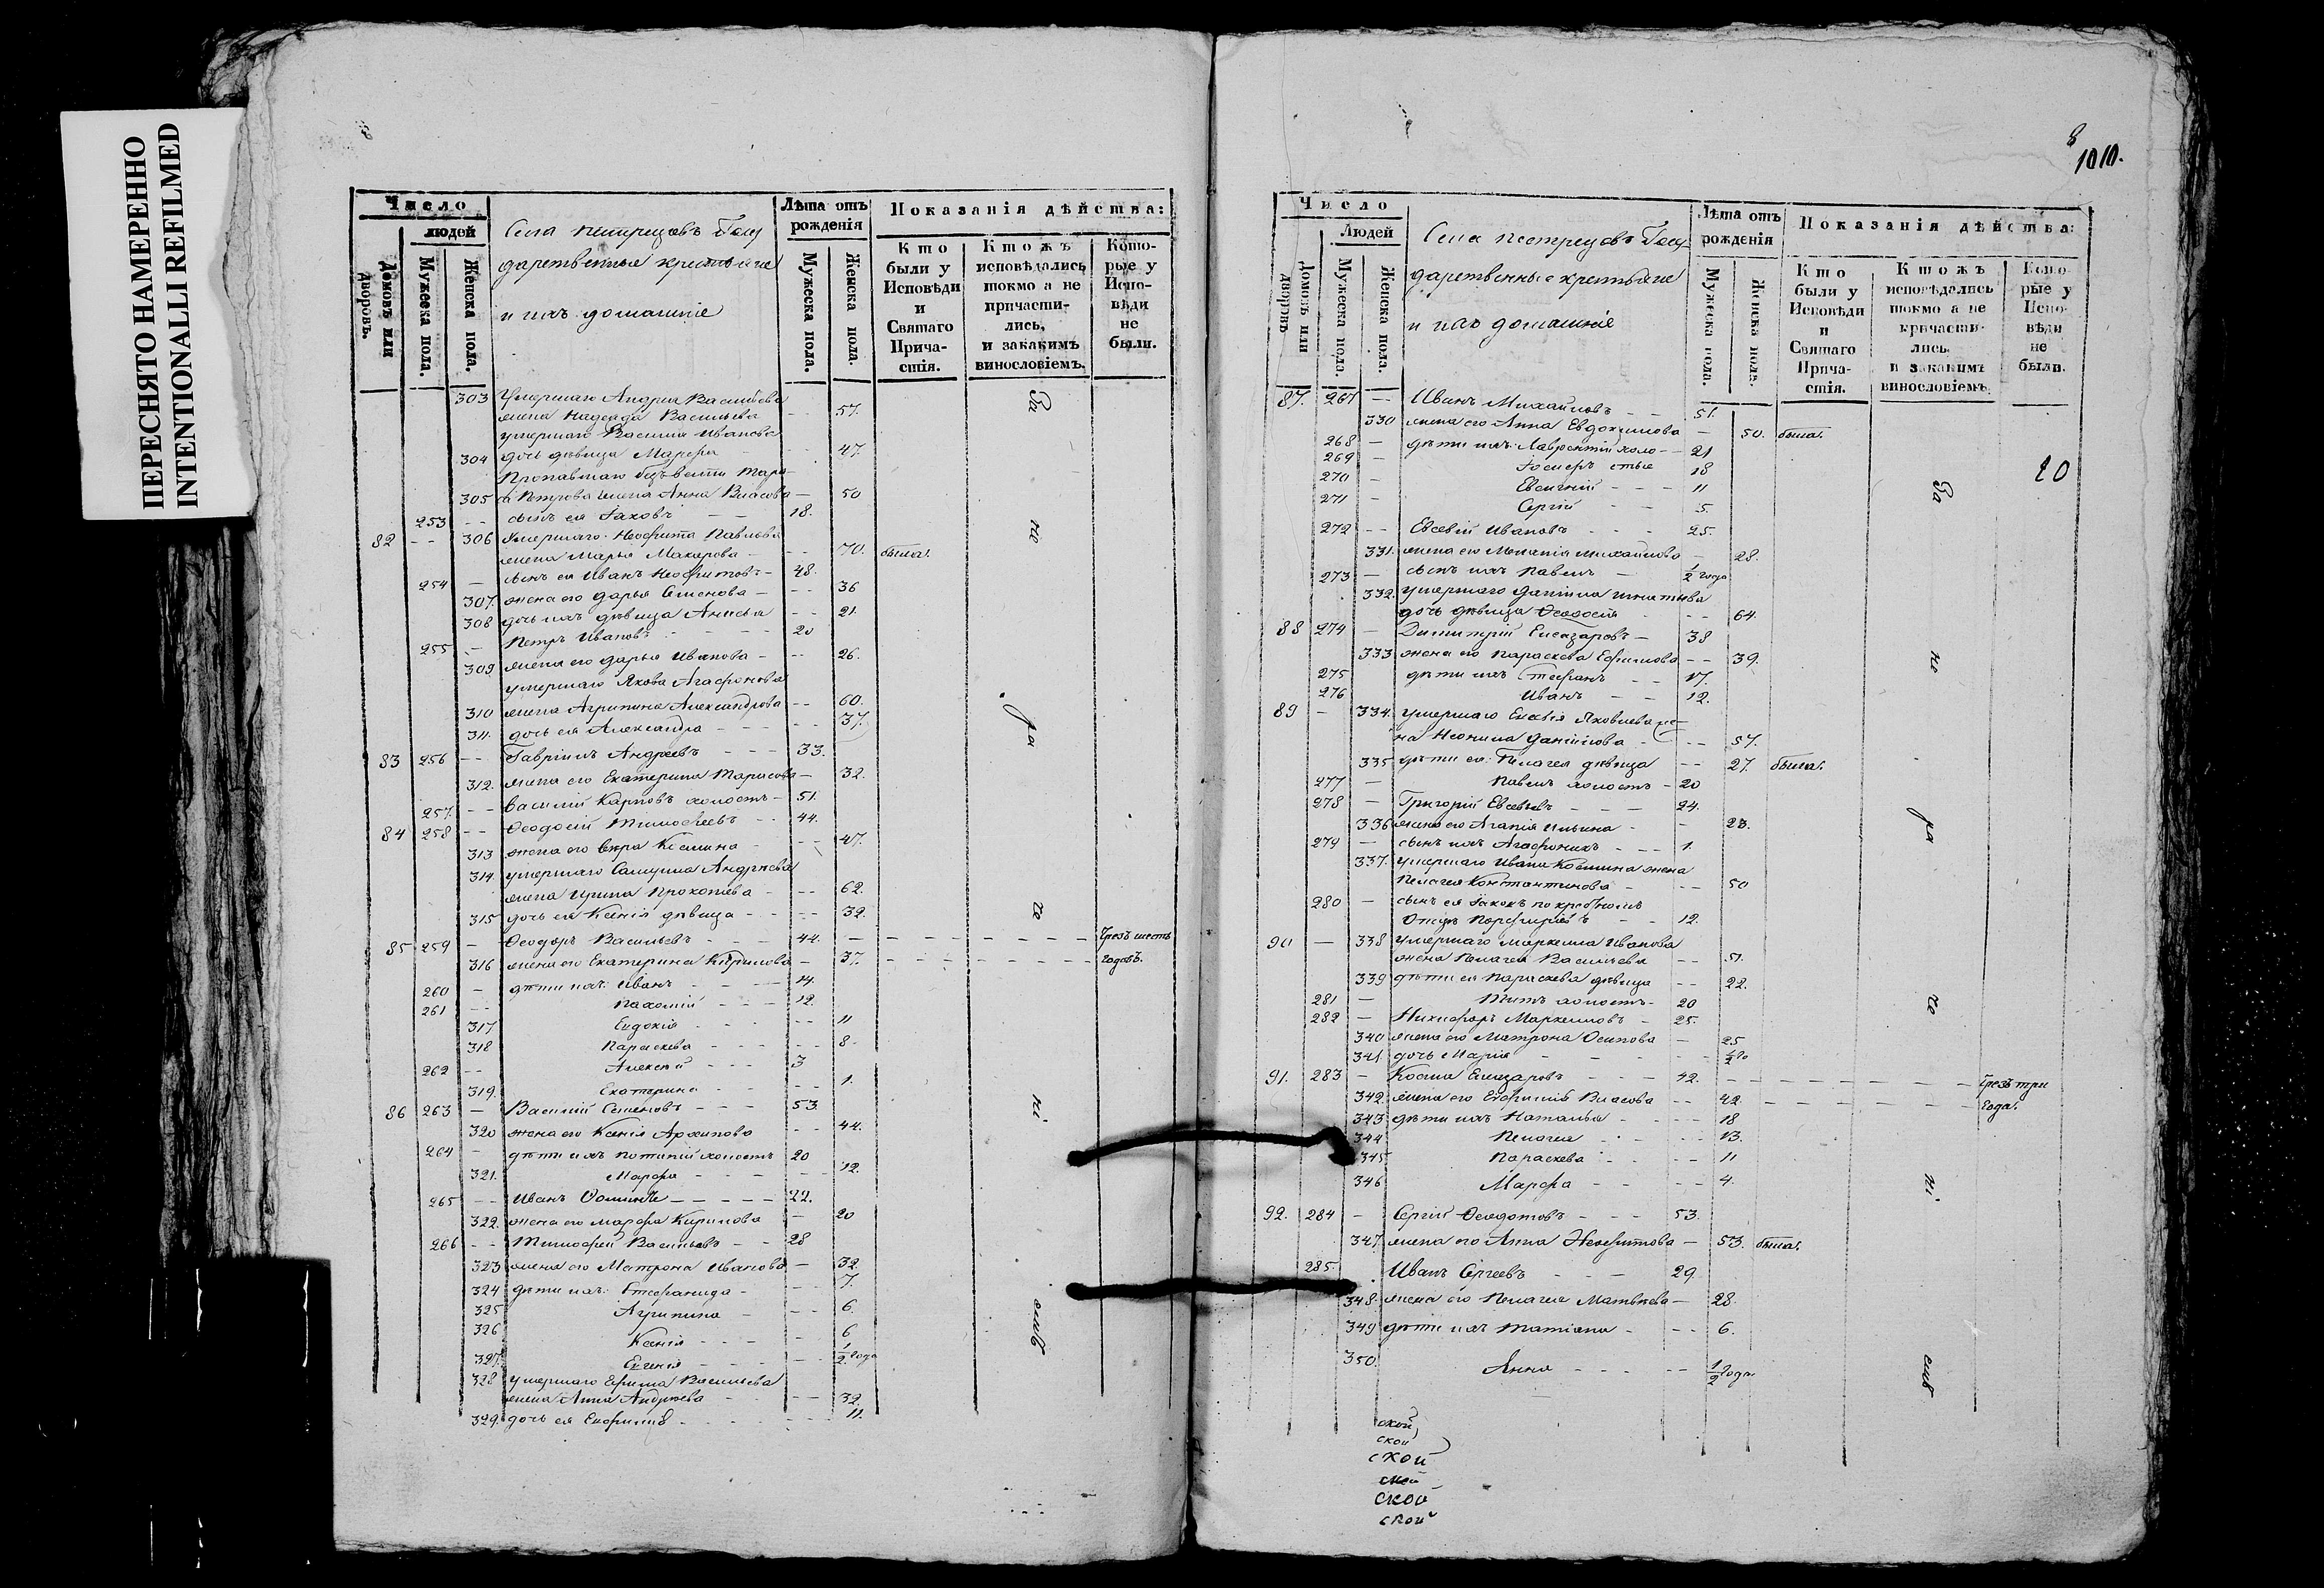 ПЕРЕСНЯТО НАМЕРЕННО
INTENTIONALLI REFILMED
Число
людей
Домовъ или дворовъ.
Мужеска пола.
Женска пола.
Села Пестрецовъ Госу
дарственные крестьяне
и ихъ домашніе
Лѣта отъ рожденія
Мужеска пола.
Женска пола.
Показанія дѣйства:
Кто были у Исповѣди и Святаго Прича-стія.
Ктожъ исповѣдались токмо а не причасти-лись, и закакимъ винословіемъ.
Кото-рые у Испо-вѣди не были.
За не ра че ні емъ
303 Умершаго Андрея Васильева
жена Надежда Васильева - 57.
умершаго Василія Иванова
304 дочь дѣвица Марфа - 47.
Пропавшаго безъ вести Тара-
305 са Петрова жена Анна Власова — 50
253 -- сынъ ея Іаковъ — — 18.
82 -- 306 Умершаго Неофита Павлова
жена Марья Макарова — -- 70. была.
254 — сынъ ея Иванъ Неофитовъ — 48.
307. жена его Дарья Семенова — -- 36
308 дочь ихъ дѣвица Анисья -- 21.
255 — Петръ Ивановъ - - - 20
309 жена его Дарья Иванова — -- 26.
умершаго Якова Агафонова
310 жена Агрипина Александрова -- 60.
311. дочь ея Александра - - - 37.
83 256 -- Гавріилъ Андреевъ - - - 33.
312. жена его Екатерина Тарасова — 32.
257. -- Василій Карповъ холостъ — 51.
84 258 -- Ѳеодосій Тимофеевъ - - 44.
313 жена его Вѣра Косьмина - -- 47.
314. умершаго Самуила Андрѣева
жена Ирина Прокопіева - -- 62.
315 дочь ея Ксенія дѣвица - - -- 32.
85 259 — Ѳеодоръ Васильевъ - - - 44. — - - - - - - Чрезъ шесть
316 жена его Екатерина Кирилова — 37. - - - - - - - годовъ.
260 — дѣти ихъ: Иванъ - - - 14.
261 -- Пахомій - - - 12.
317 Евдокія - - - -- 11
318 Параскева - - - -- 8.
262 -- Алексѣй - - - 3
319. Екатерина - - - -- 1.
86 263 — Василій Семеновъ - - - 53.
320 жена его Ксенія Архипова -- 44.
264 — дѣти ихъ Потапій холостъ 20
321. Марфа - - - -- 12.
265 -- Иванъ Ѳоминъ — - - - - 22.
322. жена его Марфа Кирилова — 20
266 -- Тимофей Васильевъ - - 28
323 жена его Матрона Иванова — 32.
324 дѣти ихъ: Стефанида - -- 7.
325 Агрипина - -- 6.
326 Ксенія - - - - 6
327. Евгенія - - - -- 1/2 года
328 умершаго Ефима Васильева
жена Анна Андрѣева - -- 32.
329. дочь ея Евфимія - - - - - 11.
1010.
Число
Людей
Домовъ или дворовъ
Мужеска пола.
Женска пола.
Села Пестрецовъ Госу-
дарственные крестьяне
и ихъ домашніе
Лѣта отъ рожденія
Мужеска пола.
Женска пола.
Показанія дѣйства:
Кто были у Исповѣди и Святаго Прича-стія.
Ктожъ исповѣдались токмо а не причасти-лись, и закакимъ винословіемъ.
Кото-рые у Испо-вѣди не были.
20
За не ра че ні емъ
87. 267 — Иванъ Михайловъ - - 51.
330 жена его Анна Евдокимова — 50. была.
268 — дѣти ихъ: Лаврентій холо- - 21
269 — стые 18
270 — Евгеній - - - 11
271 — Сергій - - 5.
272 -- Евсевій Ивановъ - - - 25.
331. жена его Меланія Михайлова — 28.
273 — сынъ ихъ Павелъ — 1/2 года
332. умершаго Даніила Игнатьева
дочь дѣвица Ѳеодосія - -- 64.
88 274 — Димитрій Елеазаровъ — 38
333 жена его Параскева Ефимова -- 39.
275 дѣти ихъ Стефанъ - - 17.
276 Иванъ - - 12.
89 — 334. умершаго Евсевія Яковлева же-
на Неонила Даніилова - -- 57.
335 дѣти ея: Пелагея дѣвица -- 27. была.
277 — Павелъ холостъ - 20
278 — Григорій Евсевьевъ - - - 24.
336 жена его Агапія Ильина - - 23.
279 — сынъ ихъ Агафоникъ - - - 1.
337. умершаго Ивана Космина жена
Пелагея Константинова - -- 50
280 — сынъ ея Іаковъ по крестному
отцу Порфирьевъ - - 12.
90 — 338 умершаго Маркелла Иванова
жена Пелагея Васильева -- 51.
339 дѣти ея Параскева дѣвица -- 22.
281 — Титъ холостъ - 20
282 — Никифоръ Маркелловъ - 25.
340 жена его Матрона Осипова - 25
341. дочь Марія - - - - 1/2 го
91. 283 — Косма Елеазаровъ - - - 42. - - - - - - - Чрезъ три
342. жена его Евфимія Власова -- 42. - - - - - - - года.
343 дѣти ихъ Наталья - - - - 18
344 Пелагея - - - - 13.
345 Параскева - - - - 11
346 Марфа - - - - 4.
92. 284 — Сергій Ѳеодотовъ - - - 53.
347. жена его Анна Неофитова — 53. была.
285. Иванъ Сергеевъ - - - 29
348. жена его Пелагея Матвѣева — 28.
349 дѣти ихъ Татіана - - - 6.
350. Анна - - - -- 1/2 года
ской
ской
ской
ской
ской